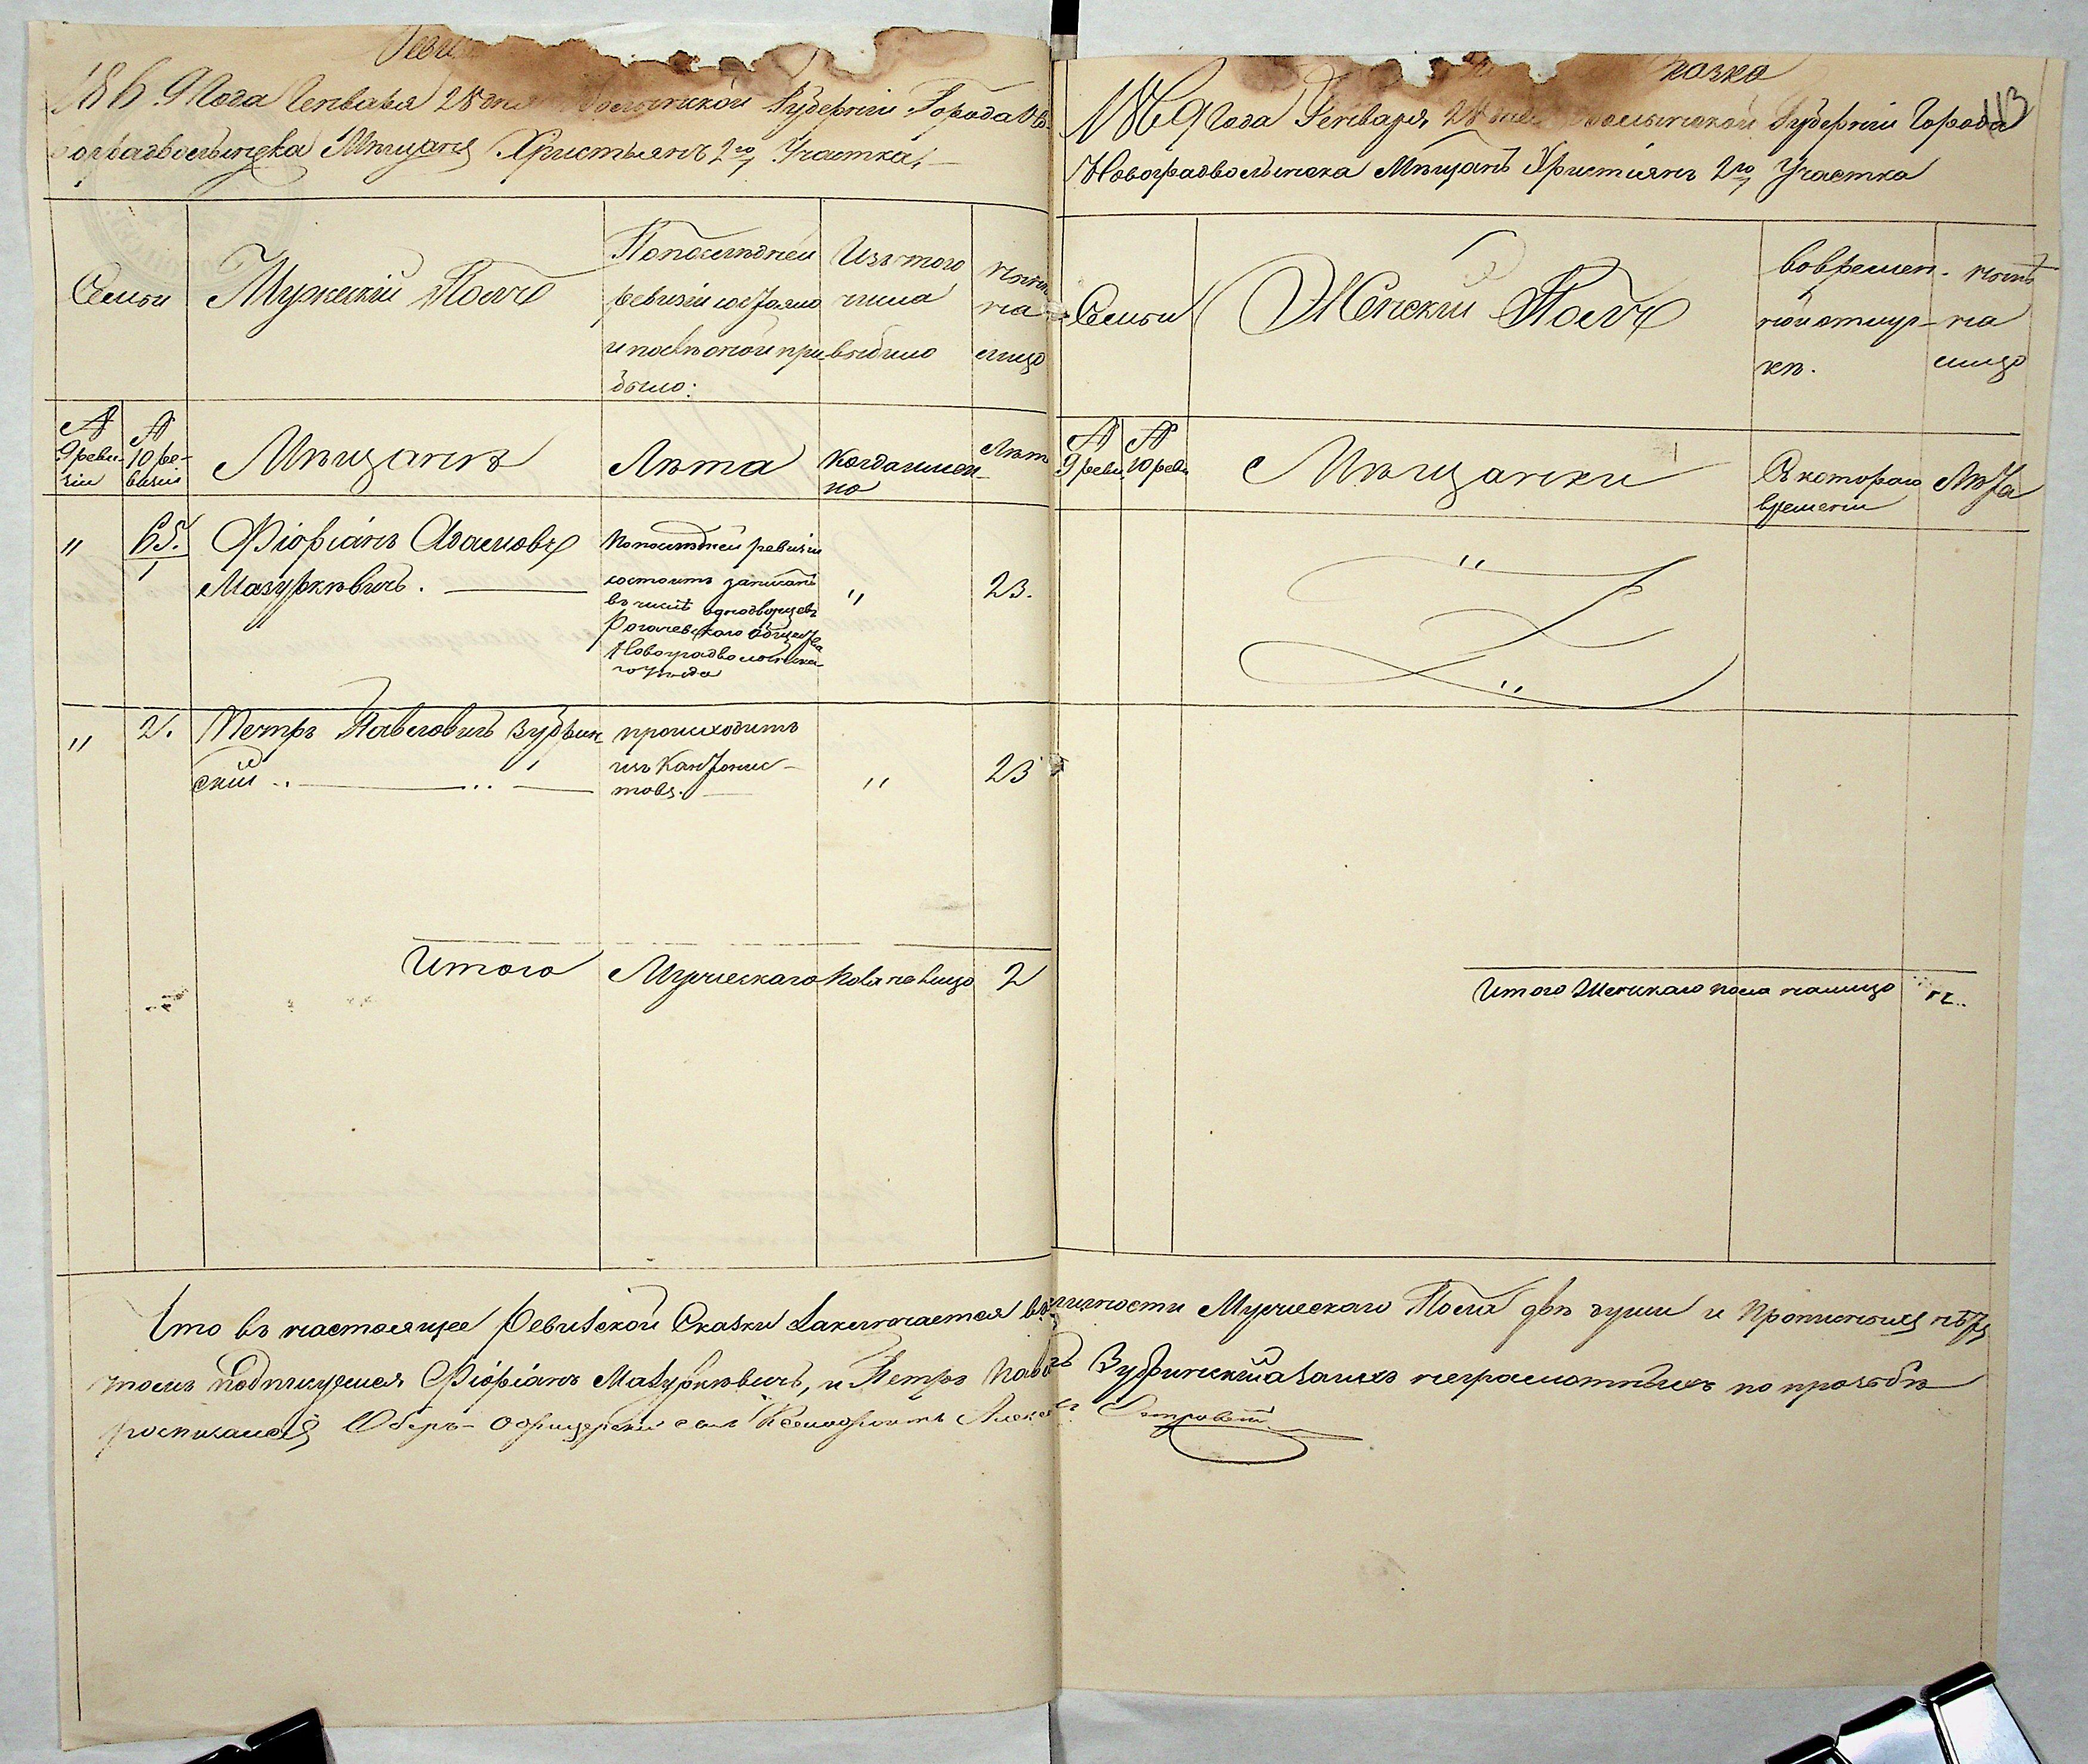 Реви
1869 года Генваря 28 дня Волынской Губерніи Города Ново
градволынска Мѣщанъ Христьянъ 2го Участка
Семьи
Мужескій Полъ
По последней
ревизіи состояло
и после оной при
было:
Изъ того
числа
выбыло
Нынѣ
на
лицо
№
9 реви
зіи
№
10 ре-
визіи
Мѣщанъ
Лѣта
Когда имен-
но
Лѣта
"
65.
1
Фіоріанъ Адамовъ
Мазуркѣвичъ.
По последней ревизіи
состоитъ записанъ
въ числѣ однодворцевъ
Рогачевскаго общества
Новоградволынска-
го уѣзда
"
23.
"
2.
Петръ Павловичъ Зубрин
скій
происходитъ
изъ Кантонис-
товъ.
"
23
Итого Мужескаго пола на лицо 2
казка
113
1869 года Генваря 28 дня Волынской Губерніи Города
Новоградволынска Мѣщанъ Христіянъ 2го Участка
Семьи
Женскій Полъ
во времен-
ной отлуч-
кѣ.
нынѣ
на
лицо
№
9 реви
№
10 реви
Мѣщанки
Съ котораго
времени
Лѣта
"
"
Итого Женскаго пола налицо
Что въ настоящее Ревизской Сказки Заключается въ личности Мужескаго Пола двѣ души и Прописныхъ нѣтъ
томъ подписуемся Фіоріанъ Мазуркѣвичъ, и Петръ Зубринскій а за ихъ неграмотныхъ по прозьбѣ
росписался Оберъ-Офицерскій сынъ Ксенофонтъ